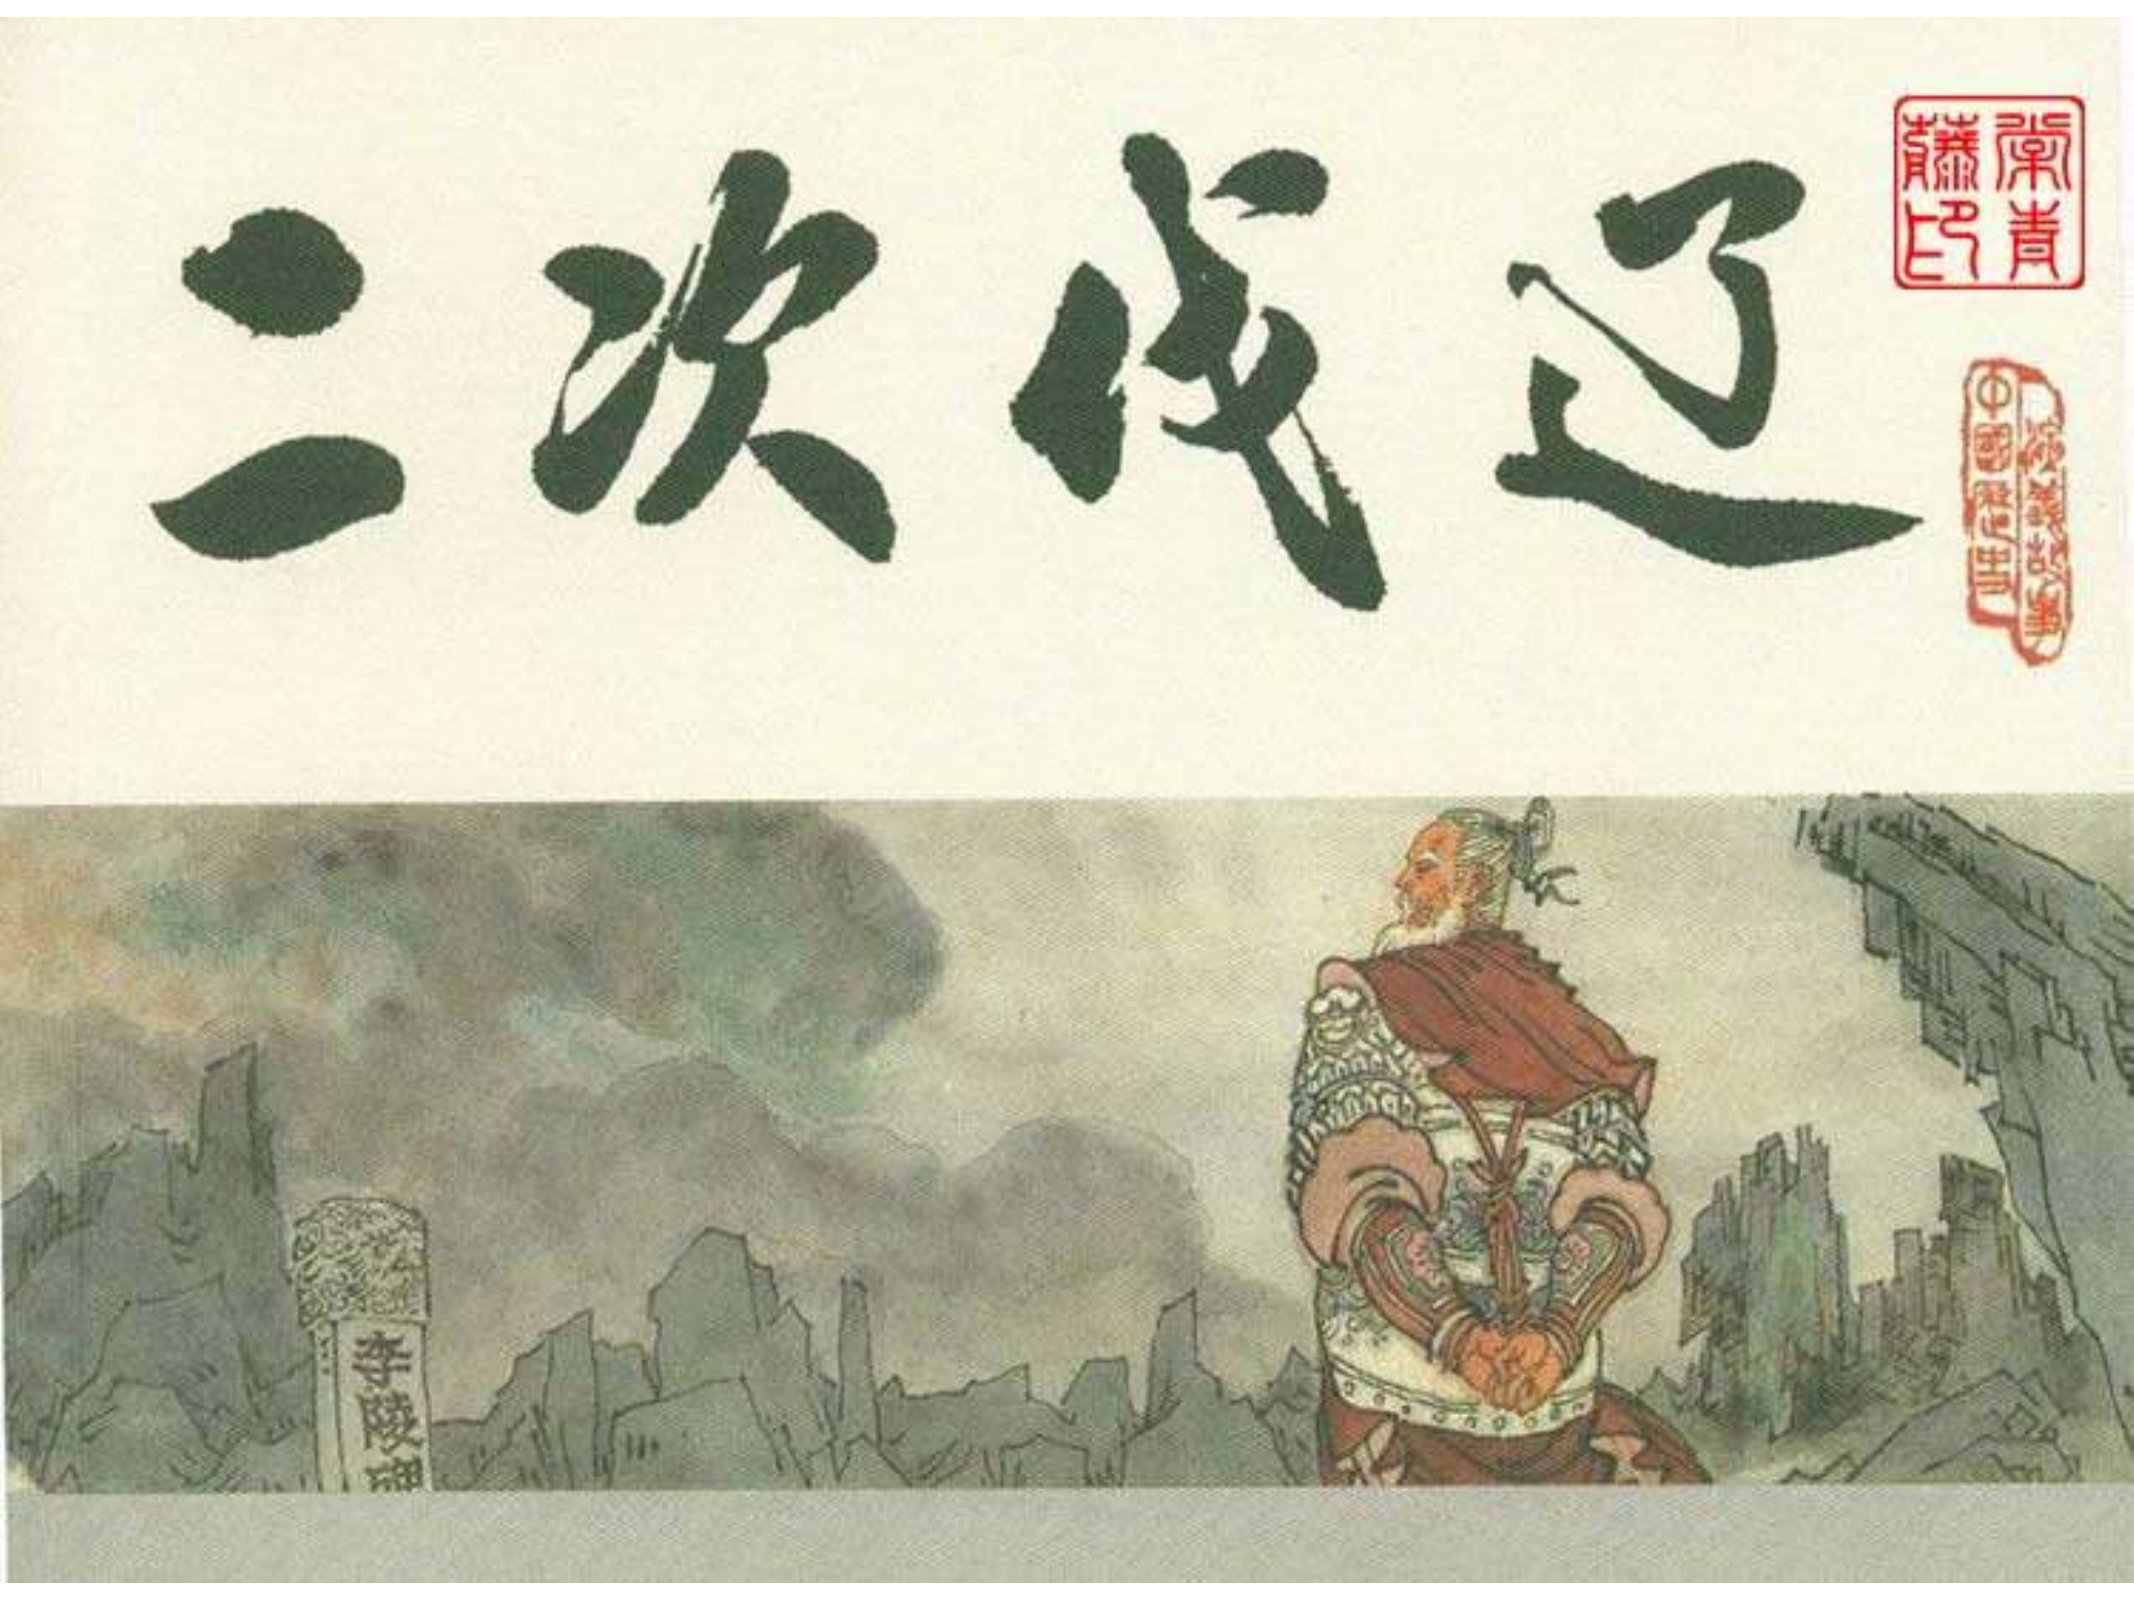 二次伐辽
常青
藤印
演义故事
中国历史
李陵碑